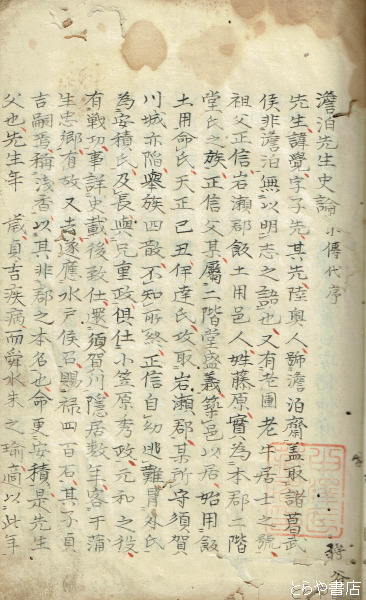 澹泊先生史論 小傳代序
先生諱覺字子先其先陸奧人號澹泊齋蓋取諸葛武
侯非澹泊無以明志之語也又有老圃老牛居士之號
祖父正信岩瀬郡飯土用邑人姓藤原實為本郡二階
堂氏之族正信父某屬二階堂盛義築邑以居始用飯
土用命氏天正己丑伊達氏攻取岩瀬郡某所守須賀
川城亦陷擧族四散不知所終正信自幼逃難冒外氏
為安積氏及長與兄重政俱仕小笠原秀政元和之役
有戰功事詳史載後致仕還須賀川隱居數年客于蒲
生忠鄉有故又去遂應水戶侯召賜祿四百石其子貞
吉嗣晋稱淺香以其非郡之本名也命更安積是先生
父也先生年 歲貞吉疾病而舜水朱之瑜適以此年
とらや書店